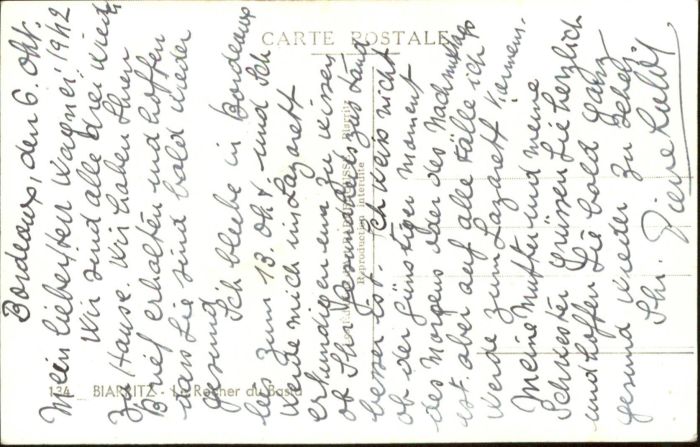 CARTE POSTALE
Bordeaux, den 6. Okt. 1942
Mein liebster Wagner
Wir sind alle drei wieder
zu Hause. Wir haben Ihren
Brief erhalten und hoffen
dass Sie sind bald wieder
gesund
Ich bleibe in Bordeaux
bis zum 13. Okt und Ich
werde mich ins Lazarett
erkundigen um zu wissen
ob Ihr
besser ist. Ich weiss nicht
ob der günstiger Moment
des Morgens oder des Nachmittags
ist. aber auf alle Fälle ich
werde zum Lazarett kommen.
Meine Mutter und meine
Schwester grüssen Sie herzlich
und hoffen Sie bald ganz
gesund wieder zu sehen.
Ihr.
Reproduction interdite
Biarritz
134 _ BIARRITZ - Le Rocher du Basta